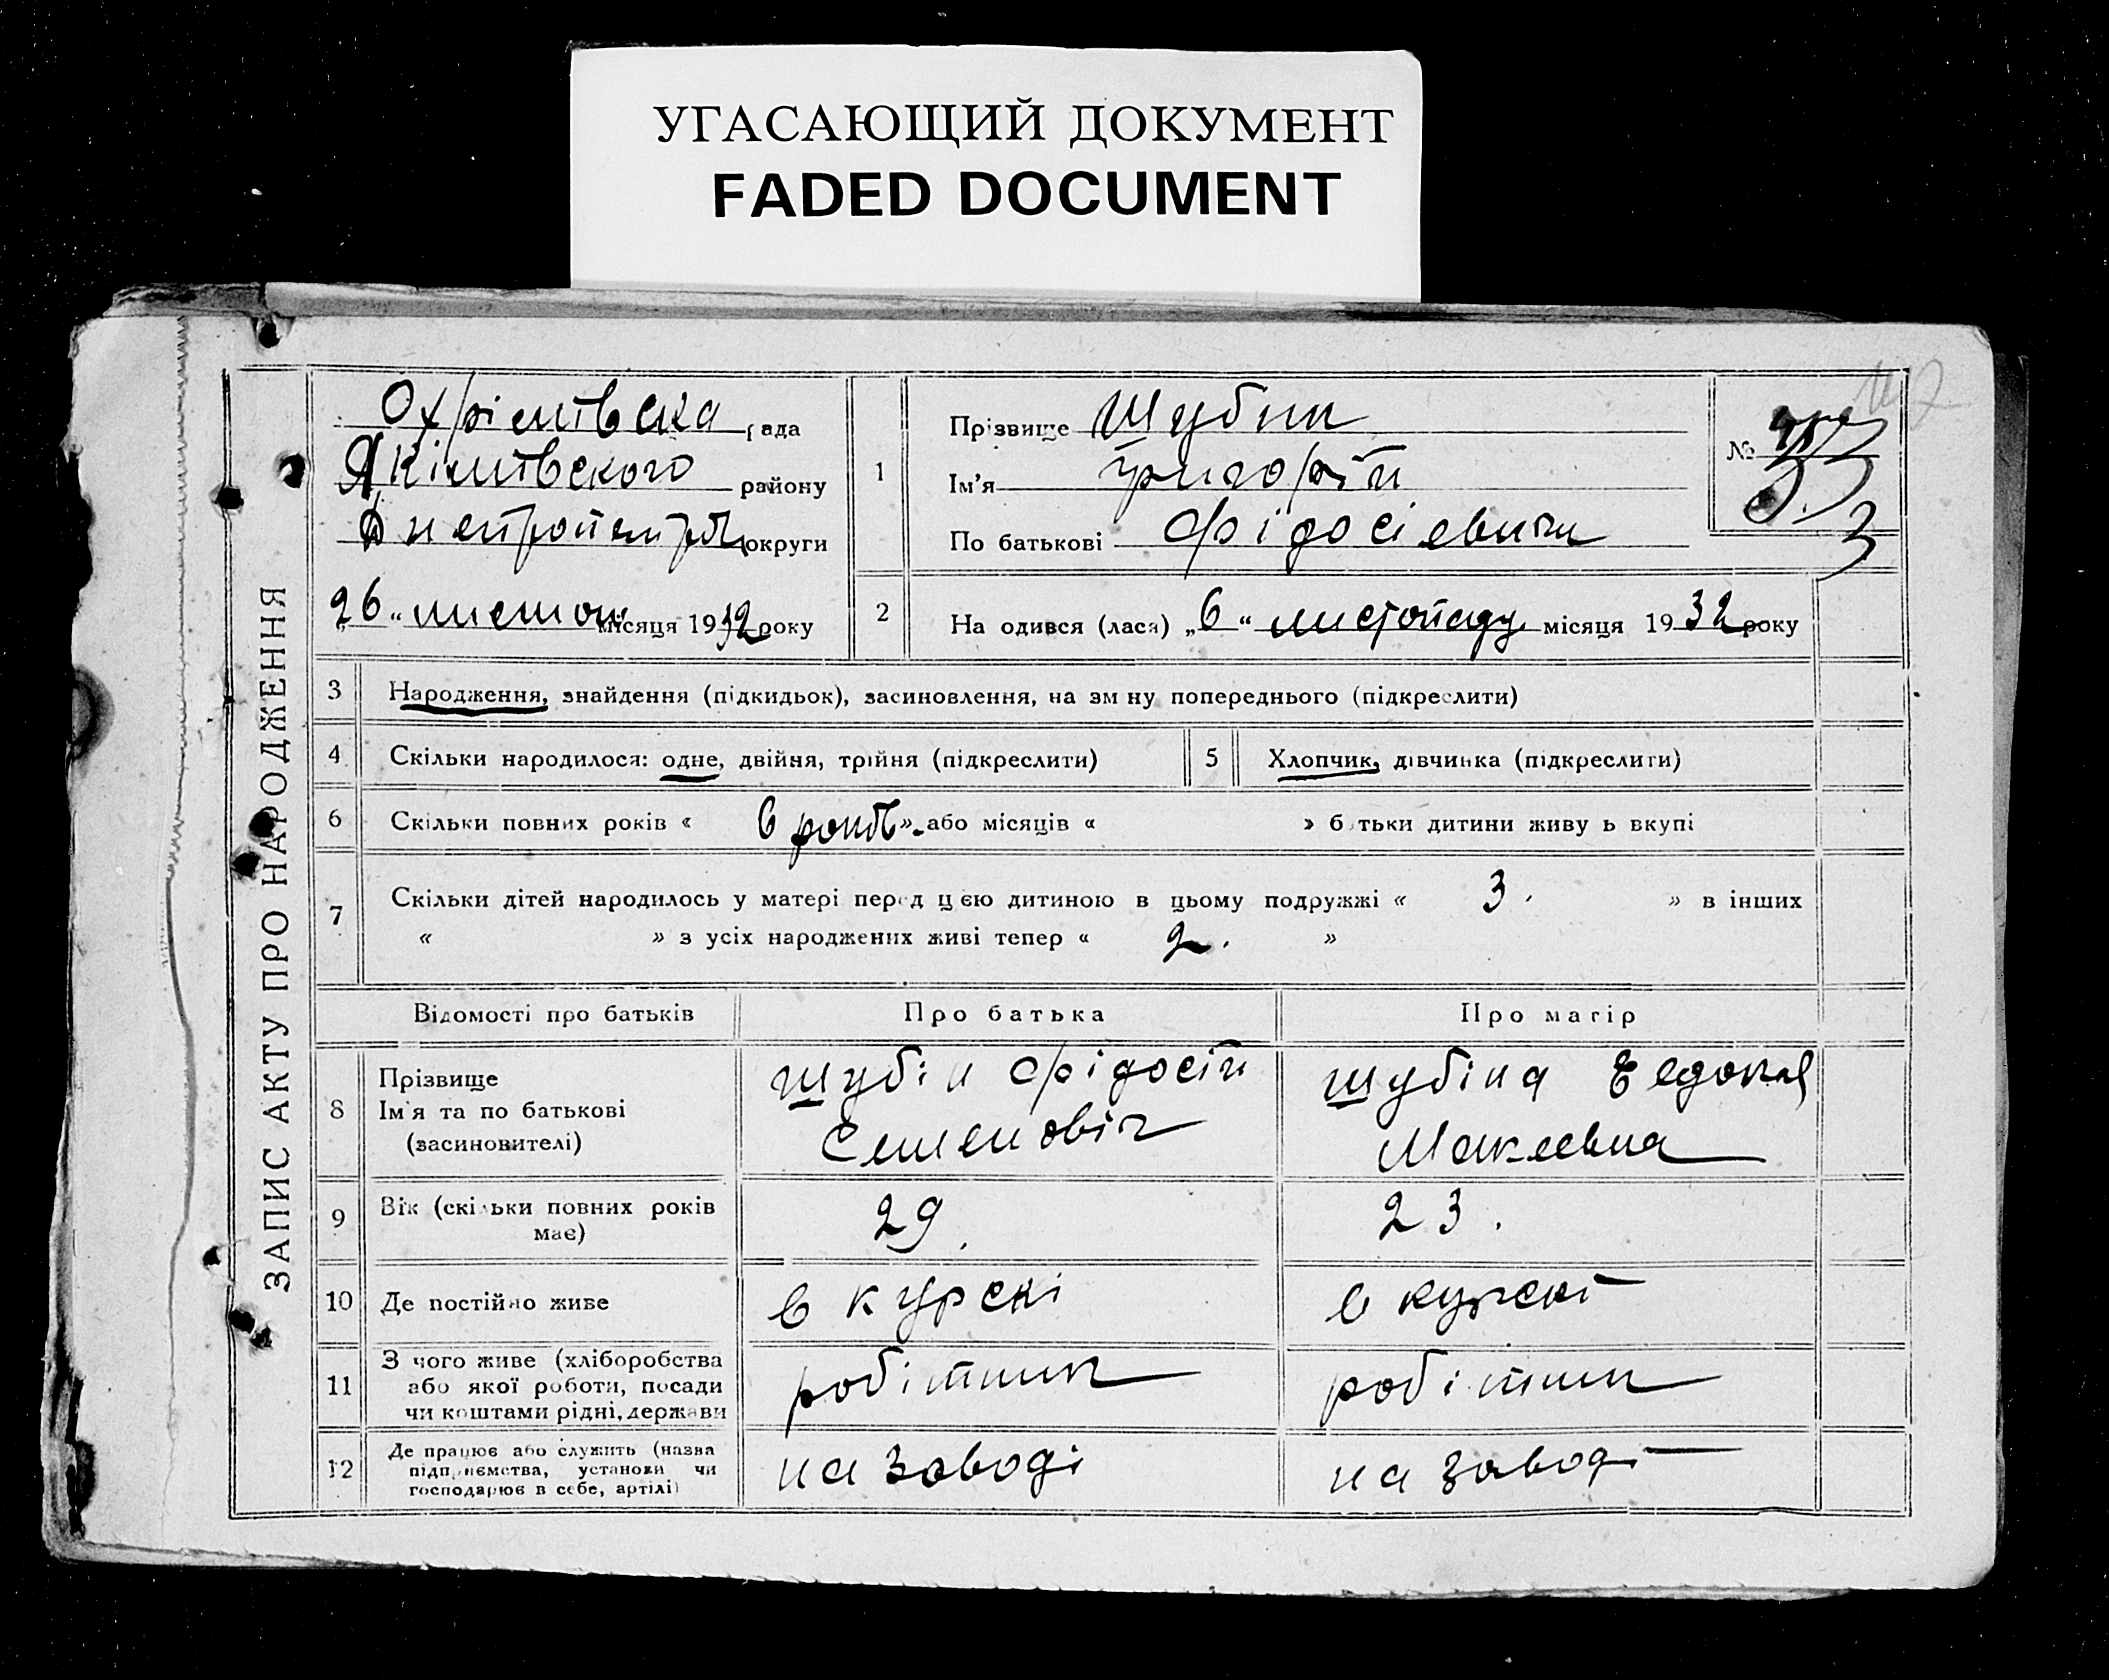 УГАСАЮЩИЙ ДОКУМЕНТ
FADED DOCUMENT
ЗАПИС АКТУ ПРО НАРОДЖЕННЯ
Охрімівська рада
Якімівского району
округи
26 " листоп. місяця 1932 року
1
Прізвище Шубин
Ім'я Григорій
По батькові Фідосієвич
№
2
На одився (лася) „6 " листопаду місяця 1932 року
3 Народження, знайдення (підкидьок), засиновлення, на зм ну попереднього (підкреслити)
4 Скільки народилося: одне, двійня, трійня (підкреслити)
5 Хлопчик, дівчинка (підкреслити)
6 Скільки повних років « 6 років » або місяців « » б тьки дитини живу ь вкупі
7 Скільки дітей народилось у матері перед цією дитиною в цьому подружжі « 3. » в інших
« » з усіх народжених живі тепер « 2. »
Відомості про батьків
Про батька
Про матір
8
Прізвище
Ім'я та по батькові
(засиновителі)
Шубін Фідосій
Семенович
Шубіна
Макеевна
9
Вік (скільки повних років
має)
29.
23.
10 Де постійно живе
в курскі
в курскі
11
З чого живе (хліборобства
або якої роботи, посади
чи коштами рідні, держави
робітник
робітник
12
Де працює або служить (назва
підприємства, установи чи
господарює в себе, артілі)
на заводі
на заводі